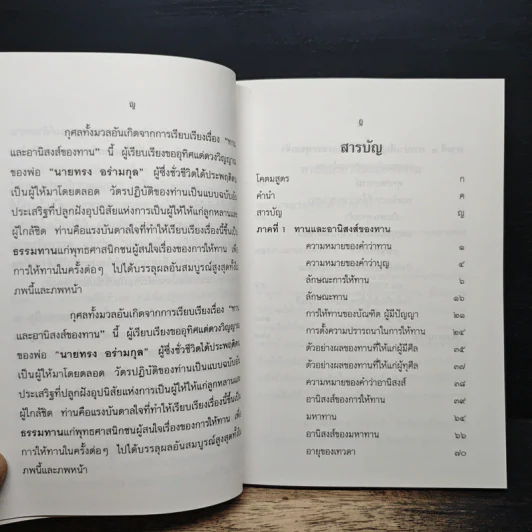 ญ
กุศลทั้งมวลอันเกิดจากการเรียบเรียงเรื่อง "ทาน
และอานิสงส์ของทาน" นี้ ผู้เรียบเรียงขออุทิศแด่ดวงวิญญาณ
ของพ่อ "นายทรง อร่ามกุล" ผู้ซึ่งชั่วชีวิตได้ประพฤติตน
เป็นผู้ให้มาโดยตลอด วัตรปฏิบัติของท่านเป็นแบบฉบับอัน
ประเสริฐที่ปลูกฝังอุปนิสัยแห่งการเป็นผู้ให้ให้แก่ลูกหลานและ
ผู้ใกล้ชิด ท่านคือแรงบันดาลใจที่ทำให้เรียบเรียงเรื่องนี้ขึ้นเป็น
ธรรมทานแก่พุทธศาสนิกชนผู้สนใจเรื่องของการให้ทาน เพื่อ
การให้ทานในครั้งต่อๆ ไปได้บรรลุผลอันสมบูรณ์สูงสุดทั้งใน
ภพนี้และภพหน้า
กุศลทั้งมวลอันเกิดจากการเรียบเรียงเรื่อง "ทาน
และอานิสงส์ของทาน" นี้ ผู้เรียบเรียงขออุทิศแด่ดวงวิญญาณ
ของพ่อ "นายทรง อร่ามกุล" ผู้ซึ่งชั่วชีวิตได้ประพฤติตน
เป็นผู้ให้มาโดยตลอด วัตรปฏิบัติของท่านเป็นแบบฉบับอัน
ประเสริฐที่ปลูกฝังอุปนิสัยแห่งการเป็นผู้ให้ให้แก่ลูกหลานและ
ผู้ใกล้ชิด ท่านคือแรงบันดาลใจที่ทำให้เรียบเรียงเรื่องนี้ขึ้นเป็น
ธรรมทานแก่พุทธศาสนิกชนผู้สนใจเรื่องของการให้ทาน เพื่อ
การให้ทานในครั้งต่อๆ ไปได้บรรลุผลอันสมบูรณ์สูงสุดทั้งใน
ภพนี้และภพหน้า
สารบัญ
โคตมสูตร ก
คำนำ ค
สารบัญ ญ
ภาคที่ 1 ทานและอานิสงส์ของทาน
ความหมายของคำว่าทาน ๑
ความหมายของคำว่าบุญ ๔
ลักษณะการให้ทาน ๖
ลักษณะทาน ๑๖
การให้ทานของบัณฑิต ผู้มีปัญญา ๒๑
การตั้งความปรารถนาในการให้ทาน ๒๔
ตัวอย่างผลของทานที่ให้แก่ผู้มีศีล ๓๕
ตัวอย่างผลของทานที่ให้แก่ผู้ทุศีล ๓๗
ความหมายของคำว่าอานิสงส์ ๓๘
อานิสงส์ของการให้ทาน ๓๙
มหาทาน ๖๔
อานิสงส์ของมหาทาน ๖๖
อายุของเทวดา ๗๐